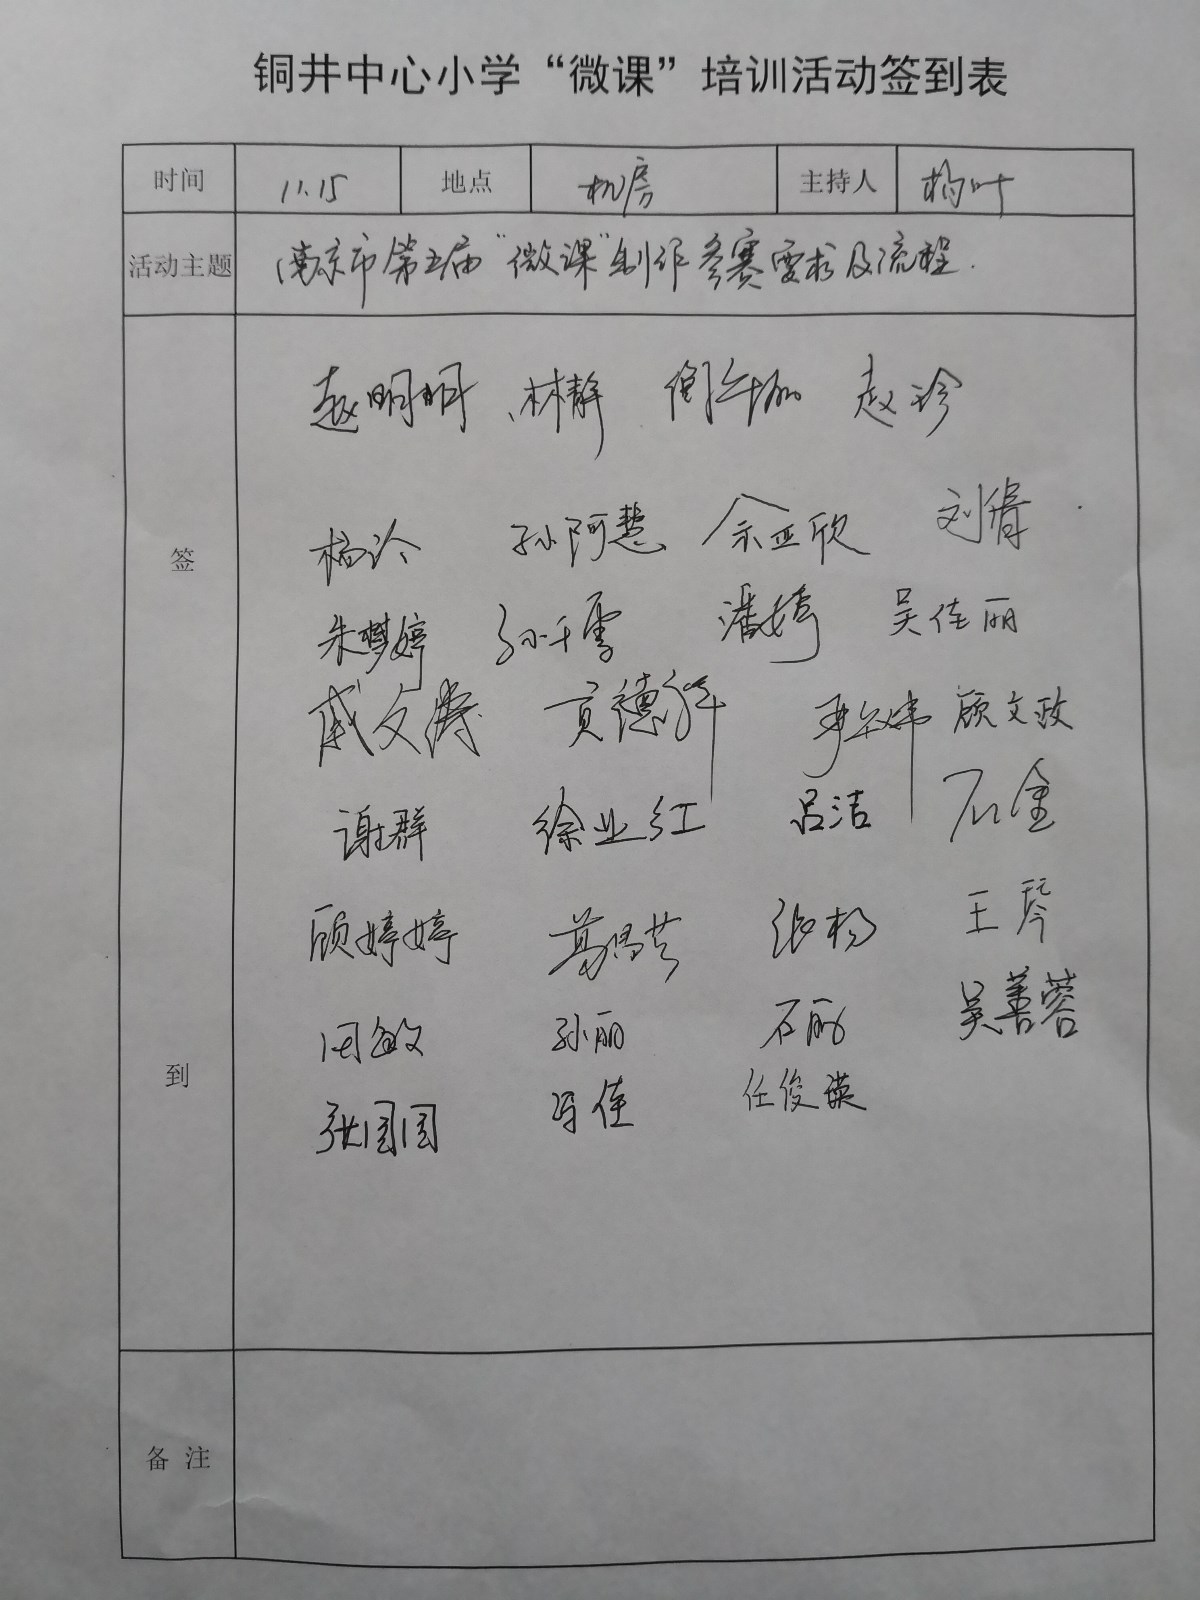 铜井中心小学“微课”培训活动签到表
时间 11.15 地点 机房 主持人 杨叶
活动主题 南京市第五届“微课”制作参赛要求及流程.
赵明明 林静 赵珍
孙阿慧 余亚欣 刘倩
朱梦婷 孙千雪 潘婷 吴佳丽
戚文涛 贡德祥 顾文政
签
谢群 徐业红 吕洁 石金
顾婷婷 葛昌芸 张杨 王琴
周敏 孙丽 石丽 吴善蓉
到
张园园 冯佳 任俊瑛
备 注